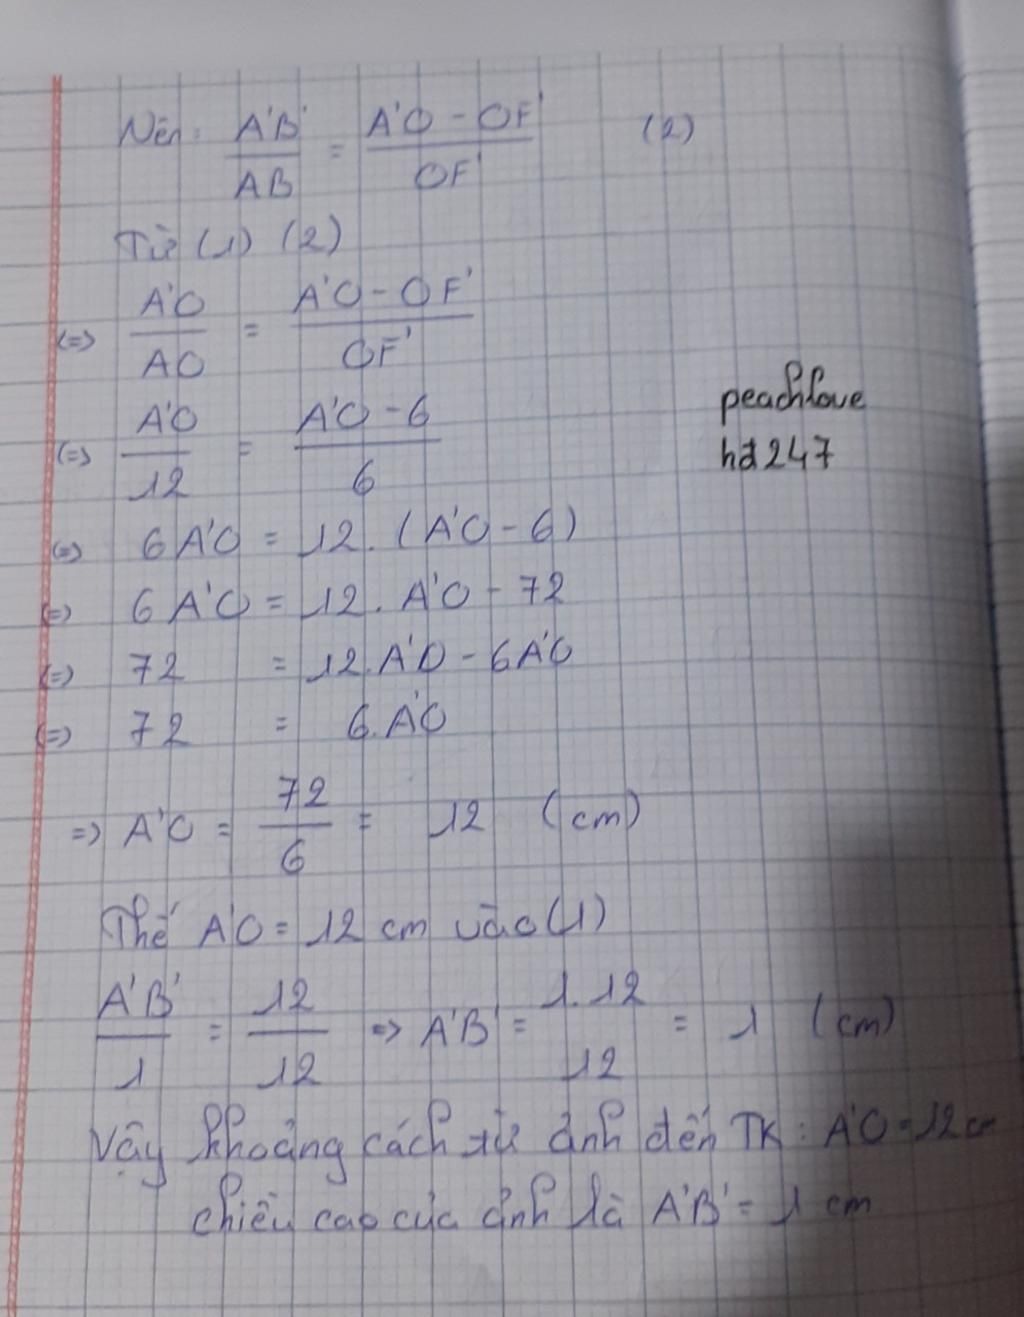 Nên: A'B'/AB = A'O - OF'/OF' (2)
Từ (1) (2)
(=) A'O/AO = A'O - OF'/OF'
(=) A'O/12 = A'O - 6/6
peachlove
hd247
(=) 6A'O = 12. (A'O - 6)
(=) 6A'O = 12. A'O - 72
(=) 72 = 12.A'O - 6A'O
(=) 72 = 6.A'O
=> A'O = 72/6 = 12 (cm)
Thế A'O = 12 cm vào (1)
A'B'/1 = 12/12 => A'B' = 1.12/12 = 1 (cm)
Vậy khoảng cách từ ảnh đến TK: A'O = 12 cm
chiều cao của ảnh là A'B' = 1 cm